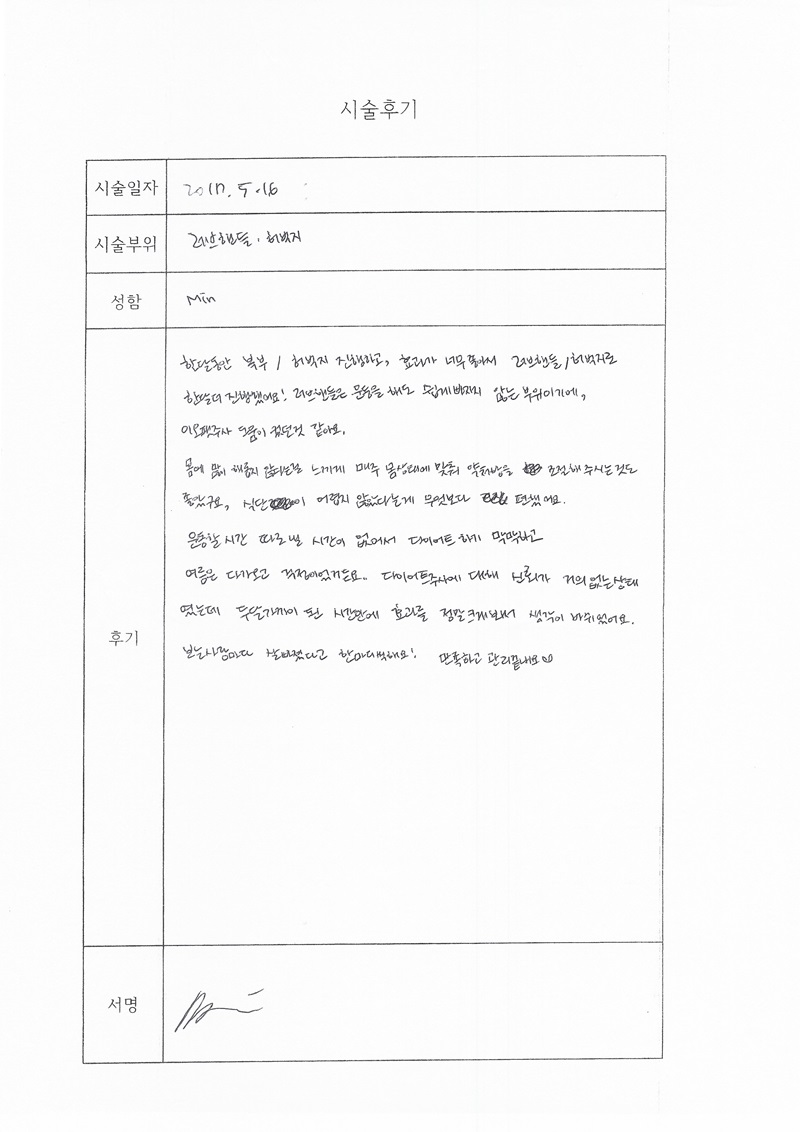 시술후기
시술일자
2017. 5. 16
시술부위
러브핸들, 허벅지
성함
Min
후기
한달동안 복부 / 허벅지 진행하고, 효과가 너무 좋아서 러브핸들/허벅지로
한달더 진행했어요! 러브핸들은 운동을 해도 쉽게 빠지지 않는 부위이기에,
주사 도움이 컸던것 같아요.
몸에 많이 해롭지 않다는걸 느끼게 매주 몸상태에 맞춰 약처방을 조절해 주시는것도
좋았구요, 식단이 어렵지 않았다는게 무엇보다 편했어요.
운동할 시간 따로 낼 시간이 없어서 다이어트 하기 막막하고
여름은 다가오고 걱정이었거든요.. 다이어트주사에 대해 신뢰가 거의 없는 상태
였는데 두달가까이 된 시간만에 효과를 정말 크게 보아서 생각이 바뀌었어요.
보는사람마다 살빠졌다고 한마디씩해요! 만족하고 관리끝내요
서명